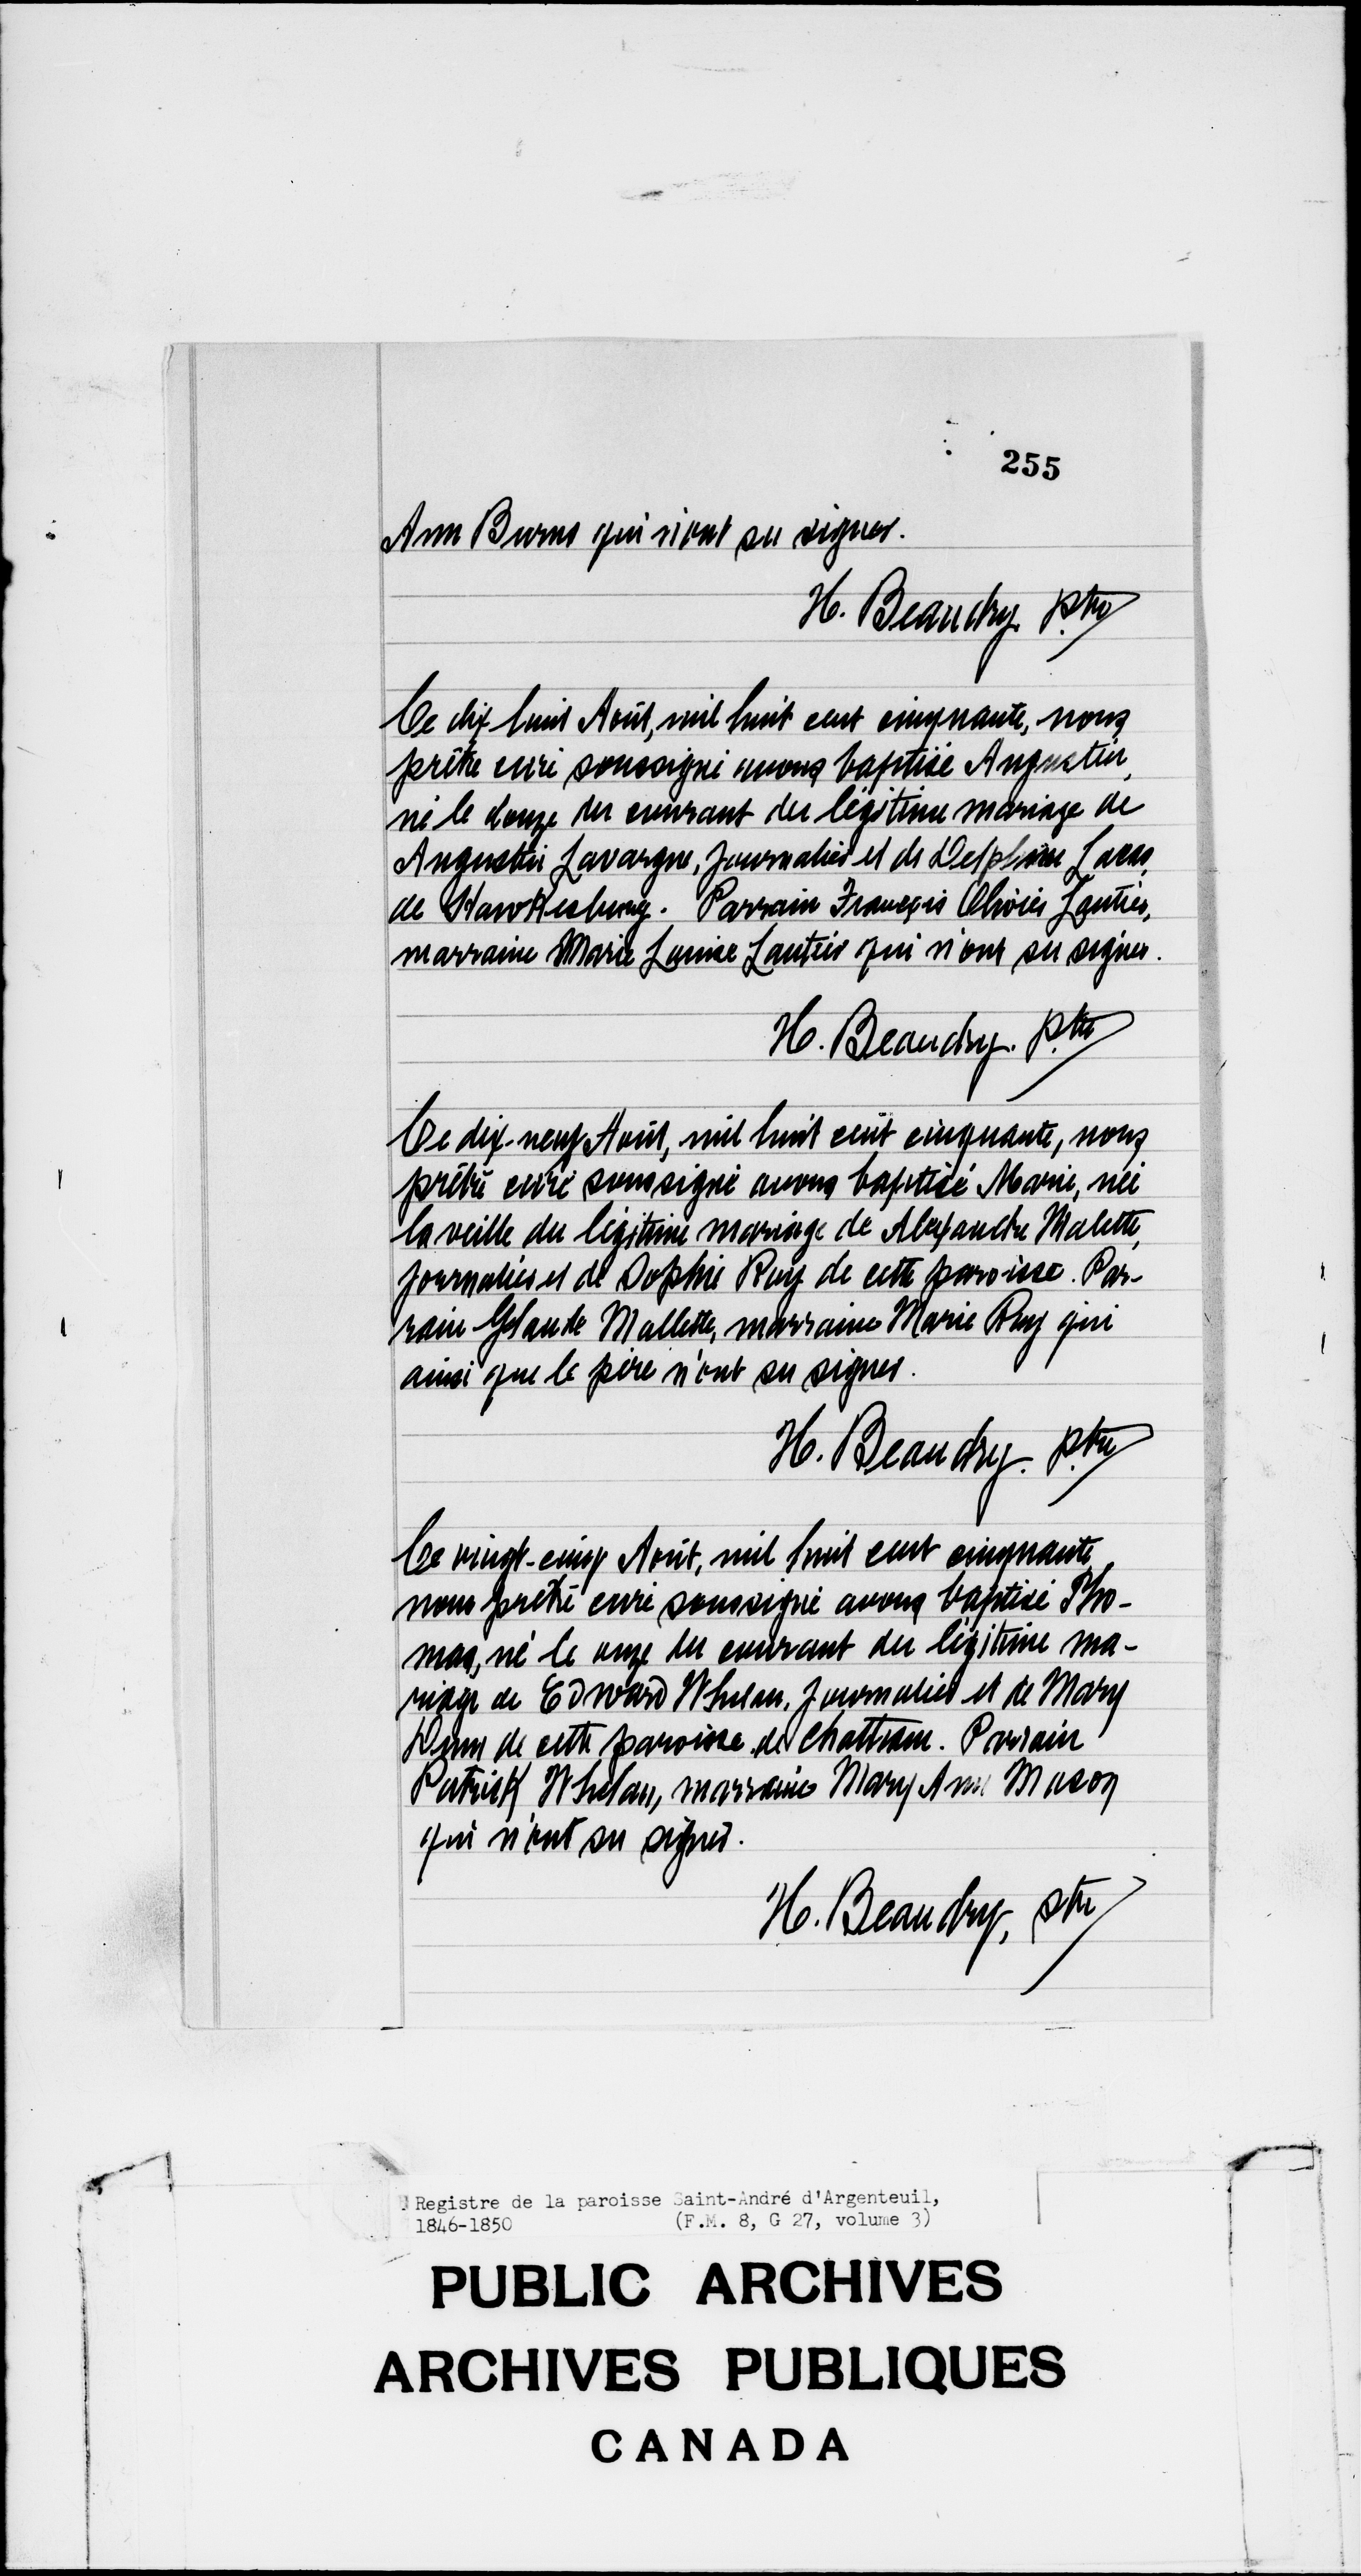 255
Ann Burns qui n'ont su signer.
H. Beaudry ptre
Ce dix huit Août, mil huit cent cinquante, nous
prêtre curé soussigné avons baptisé Augustin,
né le douze du courant du légitime mariage de
Augustin Lavargne, journalier et de Delphine
de Hawkesbury. Parrain François Lautier,
marraine Marie Louise Lautier qui n'ont su signer.
H. Beaudry. ptre
Ce dix-neuf Août, mil huit cent cinquante, nous
prêtre curé soussigné avons baptisé Marie, née
la veille du légitime mariage de Alexandre Malette,
journalier et de Sophie Roy de cette paroisse. Par-
rain Glaude Mallette, marraine Marie Roy qui
ainsi que le père n'ont su signer.
H. Beaudry. ptre
Ce vingt-cinq Août, mil huit cent cinquante
nous prêtre curé soussigné avons baptisé Tho-
mas, né le onze du courant du légitime ma-
riage de Edward Whelan, journalier et de Mary
Dunn de cette paroisse de Chattham. Parrain
Patrick Whelan, marraine Mary Ann Mason
qui n'ont su signer.
H. Beaudry, ptre
Registre de la paroisse Saint-André d'Argenteuil,
1846-1850 (F.M. 8, G 27, volume 3)
PUBLIC ARCHIVES
ARCHIVES PUBLIQUES
CANADA